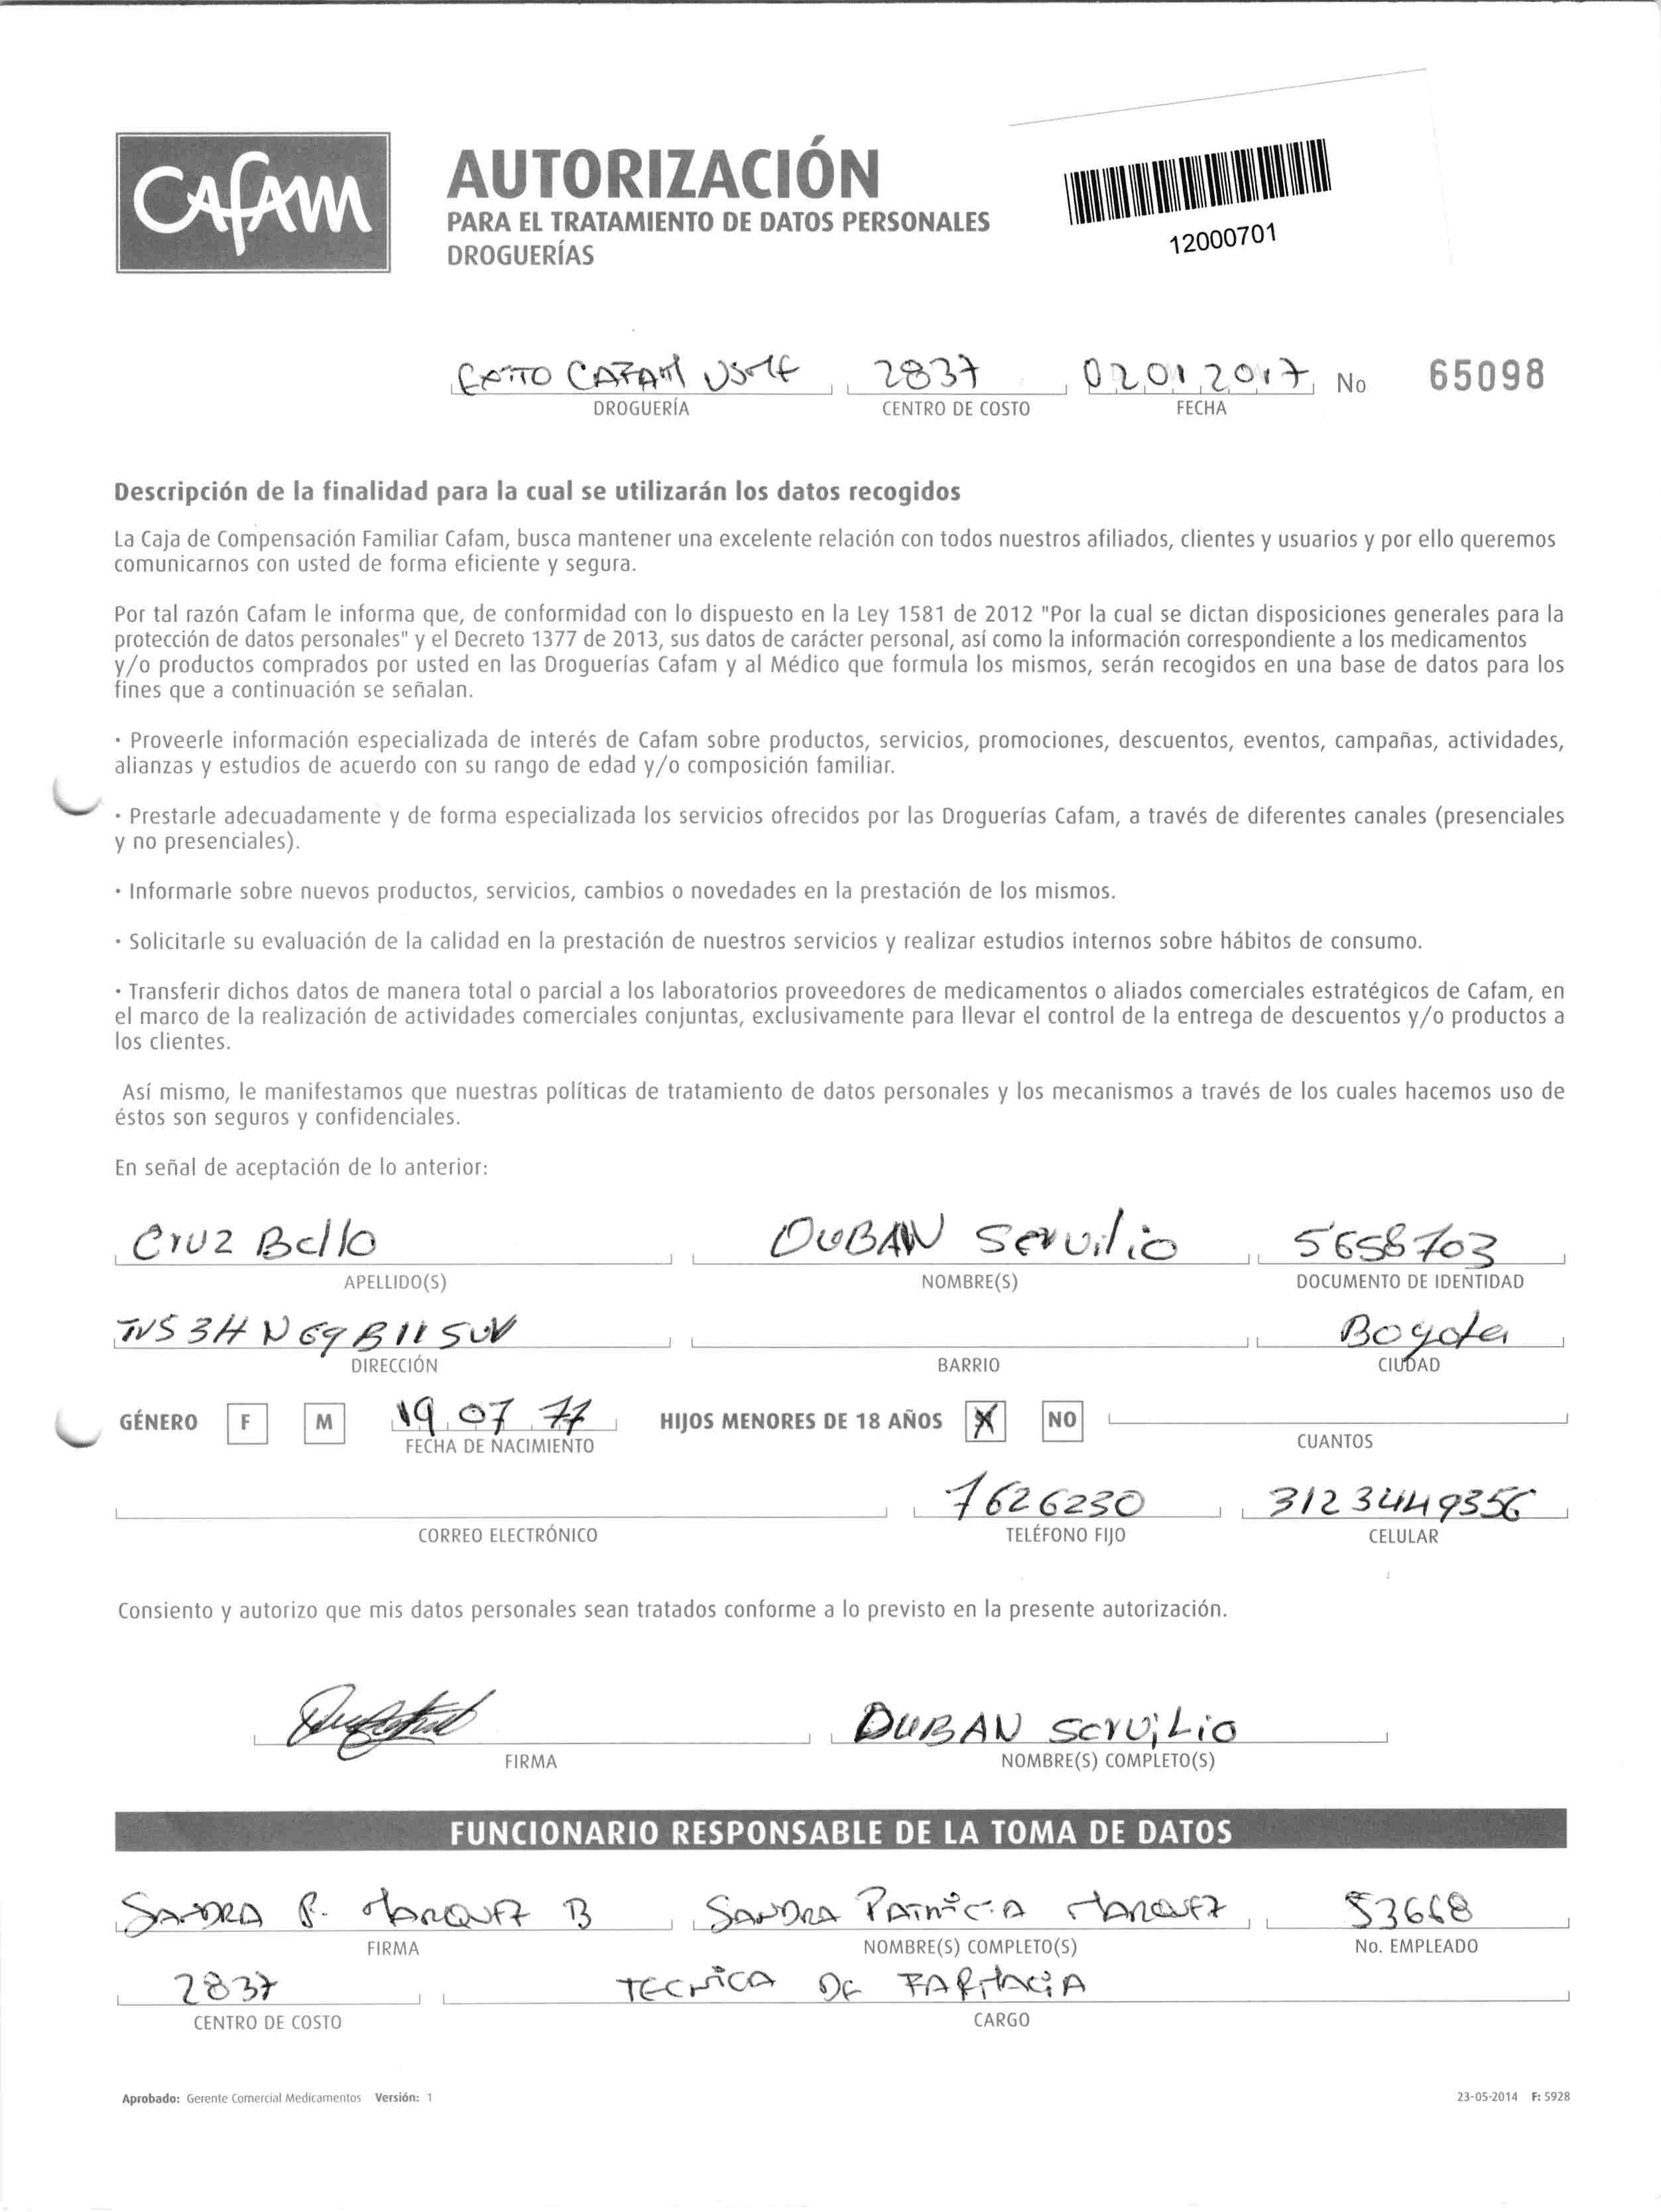 Cafam
AUTORIZACIÓN
PARA EL TRATAMIENTO DE DATOS PERSONALES
DROGUERÍAS
12000701
CAFAM 2837 02 01 2017 No 65098
DROGUERÍA CENTRO DE COSTO FECHA
Descripción de la finalidad para la cual se utilizarán los datos recogidos
La Caja de Compensación Familiar Cafam, busca mantener una excelente relación con todos nuestros afiliados, clientes y usuarios y por ello queremos
comunicarnos con usted de forma eficiente y segura.
Por tal razón Cafam le informa que, de conformidad con lo dispuesto en la Ley 1581 de 2012 "Por la cual se dictan disposiciones generales para la
protección de datos personales" y el Decreto 1377 de 2013, sus datos de carácter personal, así como la información correspondiente a los medicamentos
y/o productos comprados por usted en las Droguerías Cafam y al Médico que formula los mismos, serán recogidos en una base de datos para los
fines que a continuación se señalan.
· Proveerle información especializada de interés de Cafam sobre productos, servicios, promociones, descuentos, eventos, campañas, actividades,
alianzas y estudios de acuerdo con su rango de edad y/o composición familiar.
· Prestarle adecuadamente y de forma especializada los servicios ofrecidos por las Droguerías Cafam, a través de diferentes canales (presenciales
y no presenciales).
· Informarle sobre nuevos productos, servicios, cambios o novedades en la prestación de los mismos.
· Solicitarle su evaluación de la calidad en la prestación de nuestros servicios y realizar estudios internos sobre hábitos de consumo.
· Transferir dichos datos de manera total o parcial a los laboratorios proveedores de medicamentos o aliados comerciales estratégicos de Cafam, en
el marco de la realización de actividades comerciales conjuntas, exclusivamente para llevar el control de la entrega de descuentos y/o productos a
los clientes.
Así mismo, le manifestamos que nuestras políticas de tratamiento de datos personales y los mecanismos a través de los cuales hacemos uso de
éstos son seguros y confidenciales.
En señal de aceptación de lo anterior:
Cruz Bello DUBAN Servilio 5658703
APELLIDO(S) NOMBRE(S) DOCUMENTO DE IDENTIDAD
TVS 3H N 69 B 11 SUV Bogota
DIRECCIÓN BARRIO CIUDAD
GÉNERO F M 19 07 77 HIJOS MENORES DE 18 AÑOS X NO
FECHA DE NACIMIENTO CUANTOS
7626230 3123449356
CORREO ELECTRÓNICO TELÉFONO FIJO CELULAR
Consiento y autorizo que mis datos personales sean tratados conforme a lo previsto en la presente autorización.
DUBAN Servilio
FIRMA NOMBRE(S) COMPLETO(S)
FUNCIONARIO RESPONSABLE DE LA TOMA DE DATOS
SANDRA P. MARQUEZ B SANDRA PATRICIA MARQUEZ 53668
FIRMA NOMBRE(S) COMPLETO(S) No. EMPLEADO
2837 TECNICA DE FARMACIA
CENTRO DE COSTO CARGO
Aprobado: Gerente Comercial Medicamentos Versión: 1 23-05-2014 F: 5928